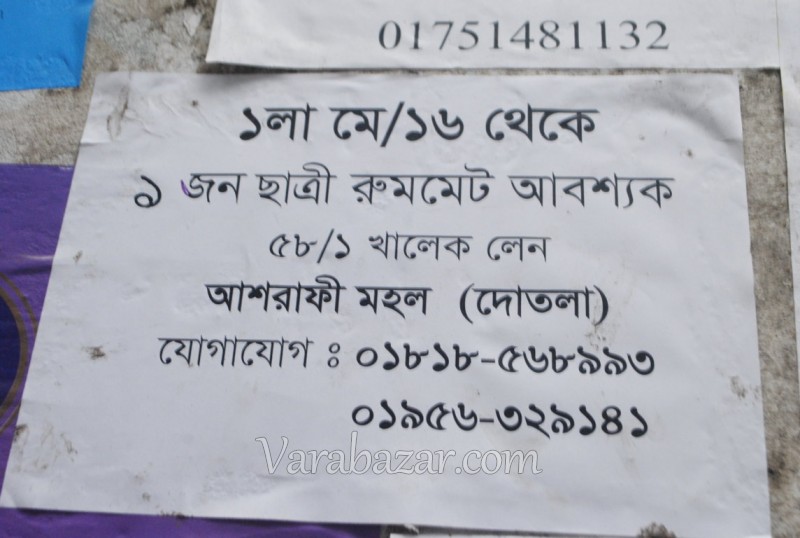 01751481132
১লা মে/১৬ থেকে
১ জন ছাত্রী রুমমেট আবশ্যক
৫৮/১ খালেক লেন
আশরাফী মহল (দোতলা)
যোগাযোগ : ০১৮১৮-৫৬৮৯৯৩
০১৯৫৬-৩২৯১৪১
Varabazar.com